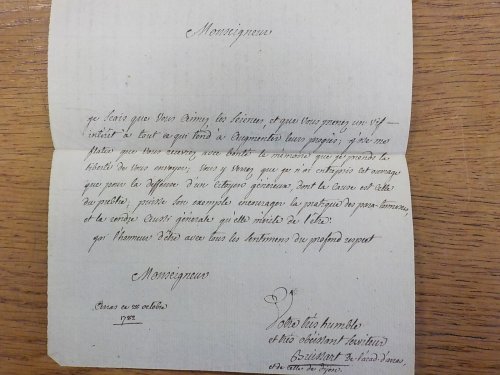 Monseigneur
je scais que vous aimez les sciences, et que vous prenez un vif
intérêt à tout ce qui tend à augmenter leurs progrès; j'ose me
flater que vous recevrez avec bonté le mémoire que je prends la
liberté de vous envoyer; vous y verrez que je n'ai entrepris cet ouvrage
que pour la deffense d'un citoyen généreux, dont la cause est celle
du public; puisse son exemple encourager la pratique des para-tonnerres,
et la rendre aussi générale qu'elle mérite de l'être:
j'ai l'honneur d'être avec tous les sentimens du profond respect
Monseigneur
Arras ce 28 octobre
1782
Votre très humble
et très obéissant serviteur
Buissart de l'acad. d'arras
et de celle de dijon.